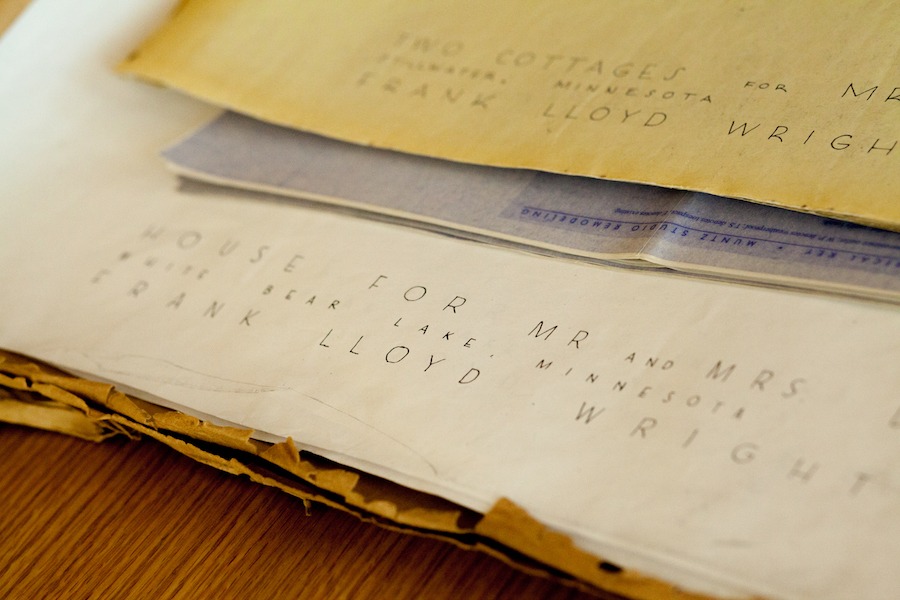 TWO COTTAGES FOR MR
STILLWATER, MINNESOTA
FRANK LLOYD WRIGH
MUNTZ STUDIO REMODELING
HOUSE FOR MR AND MRS
WHITE BEAR LAKE, MINNESOTA
FRANK LLOYD WRIGHT